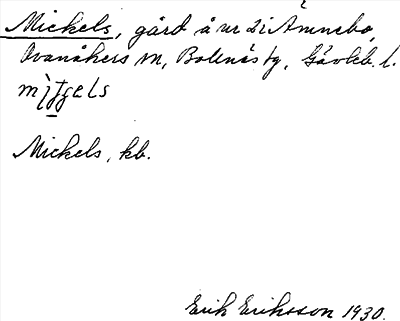 Mickels, gård å nr 2 i Ämnebo,
Ovanåkers sn, Bollnäs tg, Gävleb. l.
Mickels, kb.
Erik Eriksson 1930.